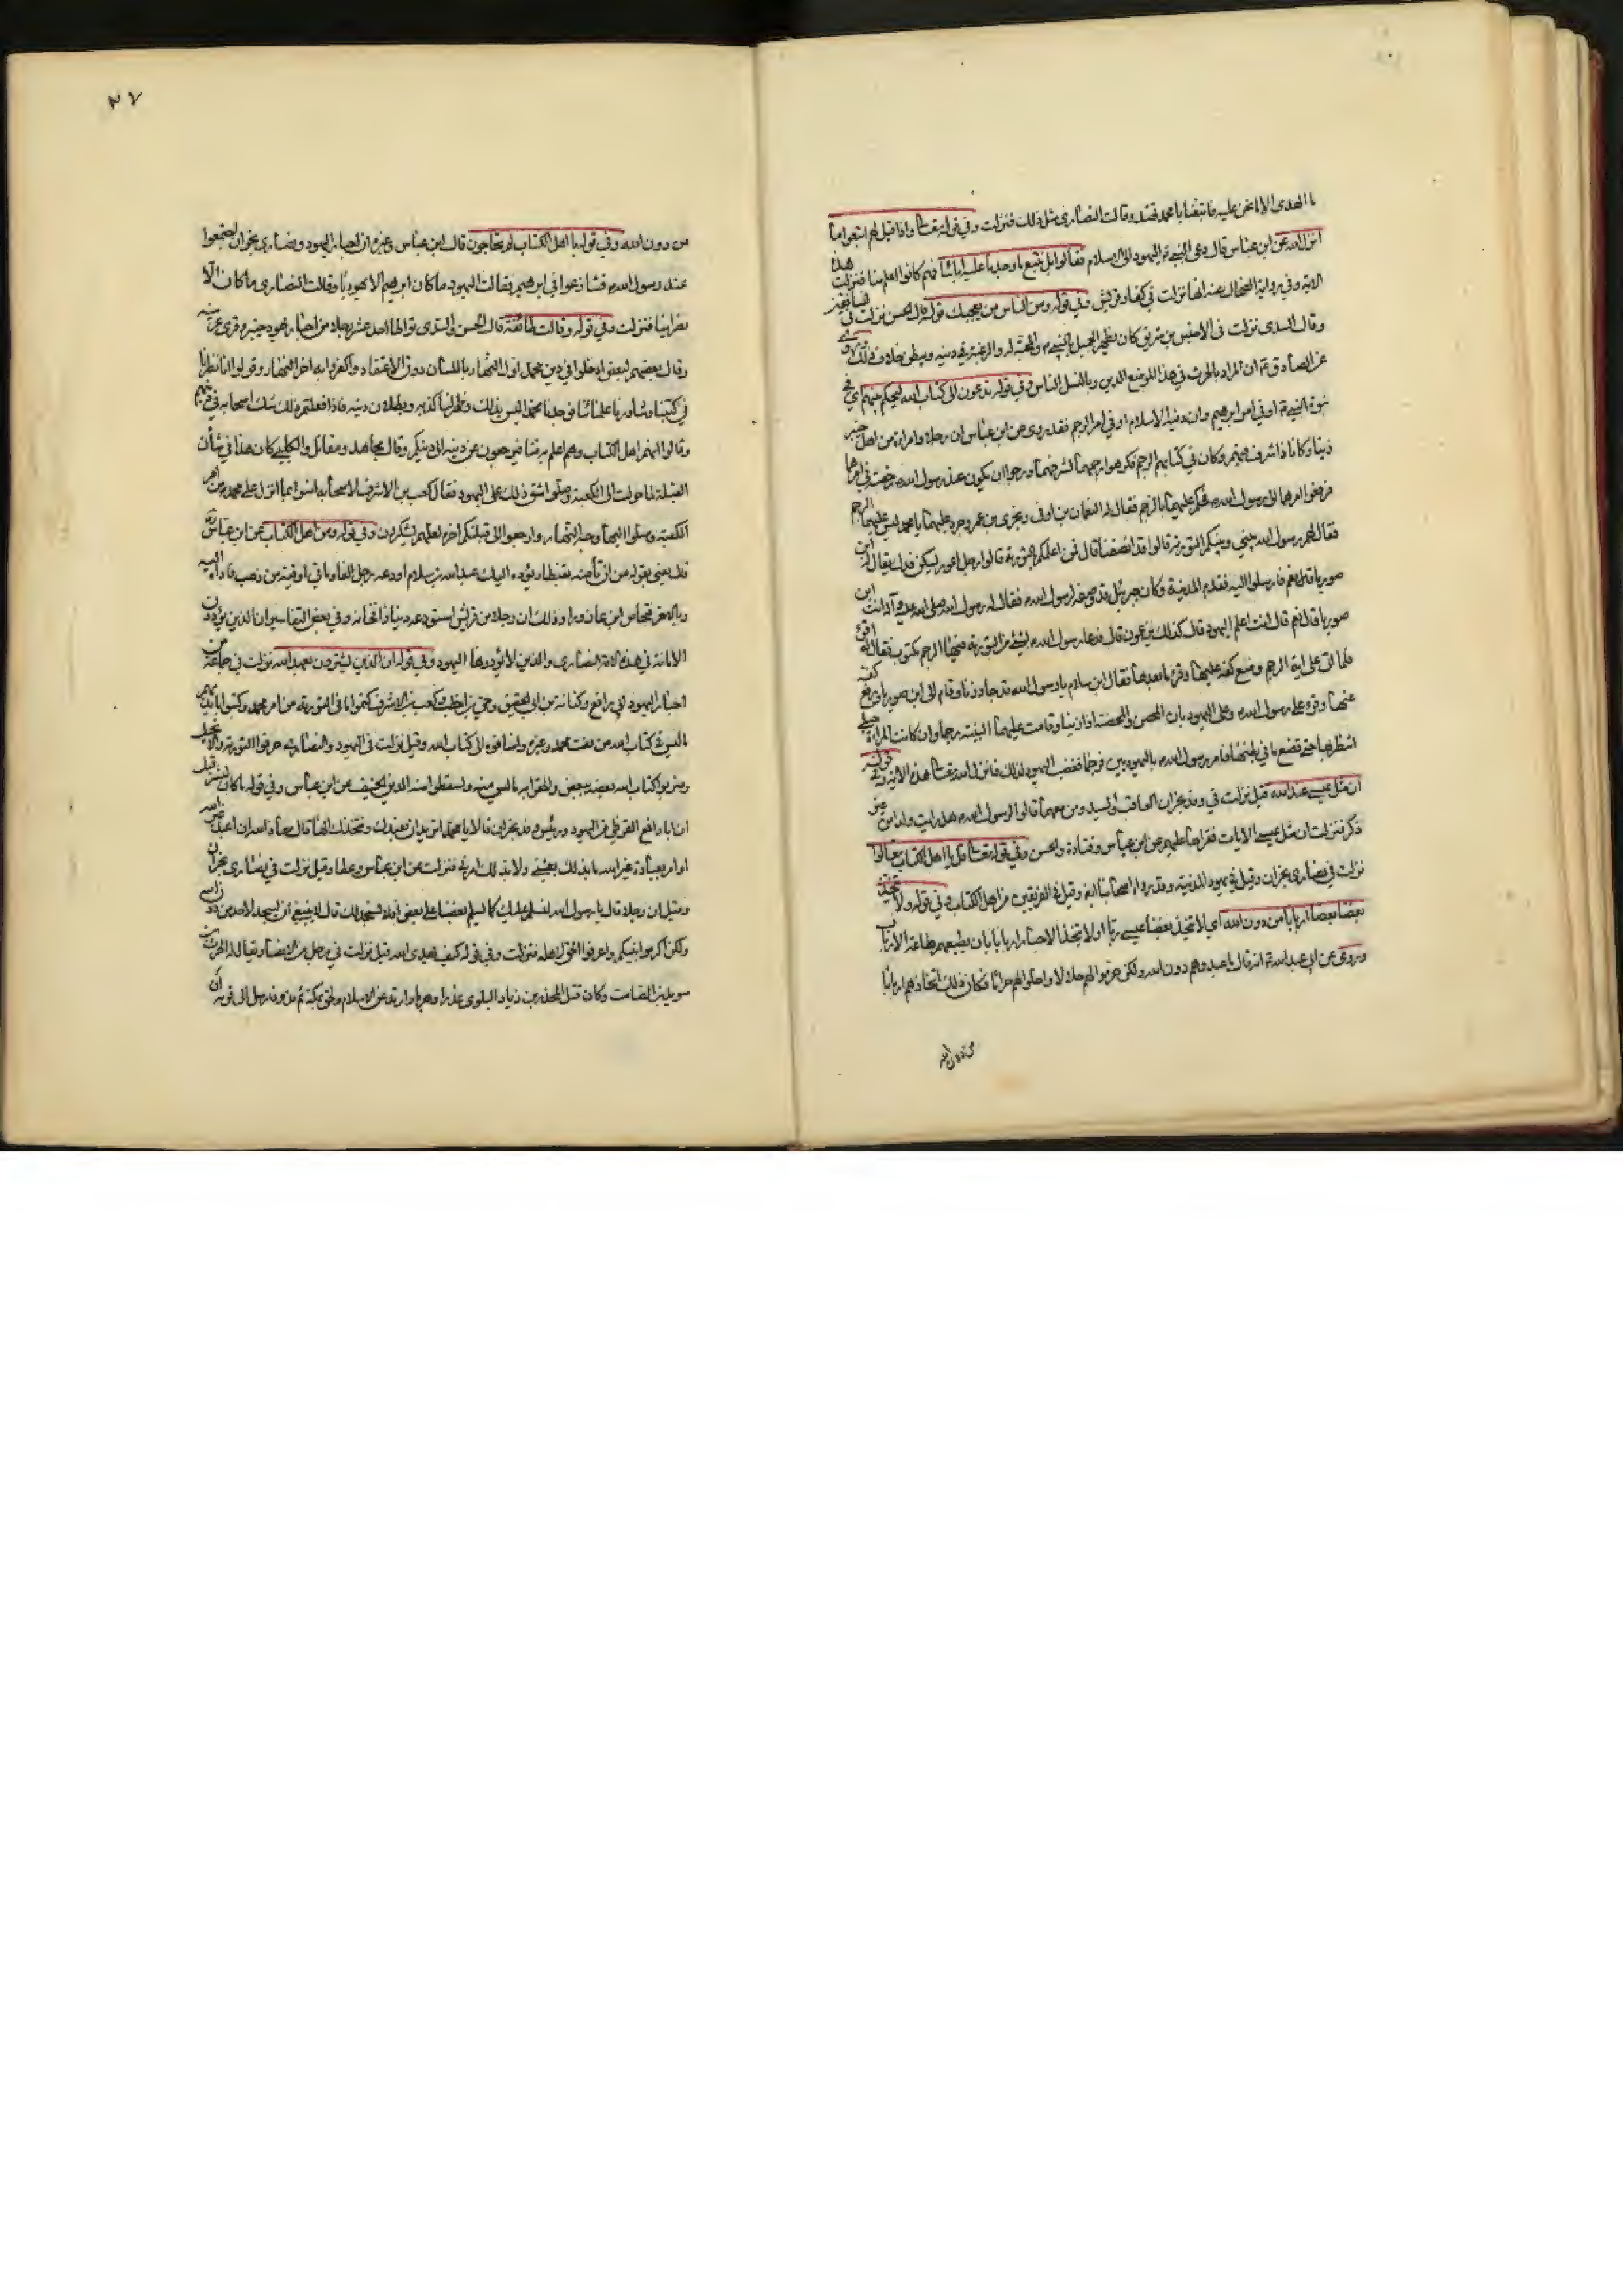 ما الهدى الا ما نحن عليه فاتبعنا يا محمد تهتد وقالت النصارى مثل ذلك فنزلت وفي قوله تعالى واذا قيل لهم اتبعوا ما
انزل الله عن ابن عباس قال دعى النبي ص اليهود الى الاسلام فقالوا بل نتبع ما وجدنا عليه اباءنا فهم كانوا اعلم منا فنزلت هذه
الاية وفي رواية الضحاك عنه انها نزلت في كفار قريش وفي قوله ومن الناس من يعجبك قوله قال الحسن نزلت في المنافقين
وقال السدى نزلت في الاخنس بن شريق كان يظهر الجميل بالنبي ص والمحبة له والرغبة في دينه ويبطن خلاف ذلك وروى
عن الصادق ع ان المراد بالحرث في هذا الموضع الدين وبالنسل الناس وفي قوله تدعون الى كتاب الله ليحكم بينهم اي في
نبوة النبي ص او في امر ابرهيم وان دينه الاسلام او في امر الرجم فقد روى عن ابن عباس ان رجلا وامراة من اهل خيبر
زنيا وكانا ذا شرف فيهم وكان في كتابهم الرجم فكرهوا رجمهما لشرفهما ورجوا ان يكون عند رسول الله ص رخصة في امرهما
فرفعوا امرهما الى رسول الله ص فحكم عليهما بالرجم فقال له النعمان بن اوفى وبحرى بن عمرو جرت عليهما يا محمد ليس عليهما الرجم
فقال لهم رسول الله بيني وبينكم التورية قالوا قد انصفتنا قال فمن اعلمكم بالتورية قالوا رجل اعور يسكن فدك يقال له ابن
صوريا قال نعم فارسلوا اليه فقدم المدينة وكان جبرئيل قد وصفه لرسول الله ص فقال له رسول الله صلى الله عليه وآله انت ابن
صوريا قال نعم قال انت اعلم اليهود قال كذلك يزعمون قال فدعا رسول الله ص بشئ من التورية فيها الرجم مكتوب فقال له اقرء
فلما اتى على اية الرجم وضع كفه عليها وقرء ما بعدها فقال ابن سلام يا رسول الله قد جاوزها وقام الى ابن صوريا ورفع كفه
عنها وقرء على رسول الله ص وعلى اليهود بان المحصن والمحصنة اذا زنيا وقامت عليهما البينة رجما وان كانت المراة حبلى
انتظر بها حتى تضع ما في بطنها فامر رسول الله ص باليهوديين فرجما فغضب اليهود لذلك فانزل الله تعالى هذه الاية وفي قوله
ان مثل عيسى عند الله قيل نزلت في وفد نجران العاقب والسيد ومن معهما قالوا لرسول الله ص هل رايت ولدا من غير
ذكر فنزلت ان مثل عيسى الايات فقراها عليهم عن ابن عباس وقتادة والحسن وفي قوله تعالى قل يا اهل الكتاب تعالوا
نزلت في نصارى نجران وقيل في يهود المدينة وقد رواه اصحابنا ايضا وقيل في الفريقين من اهل الكتاب وفي قوله ولا يتخذ
بعضنا بعضا اربابا من دون الله اي لا نتخذ بعضنا عيسى ربا او لا نتخذ الاحبار اربابا بان نطيعهم طاعة الارباب
وروى عن ابي عبد الله ع انه قال ما عبدوهم من دون الله ولكن حرموا لهم حلالا واحلوا لهم حراما فكان ذلك اتخاذهم اربابا
من دون الله
٣٧
من دون الله وفي قوله يا اهل الكتاب لم تحاجون قال ابن عباس وغيره ان احبار اليهود ونصارى نجران اجتمعوا
عند رسول الله ص فتنازعوا في ابرهيم فقالت اليهود ما كان ابرهيم الا يهوديا وقالت النصارى ما كان الا
نصرانيا فنزلت وفي قوله وقالت طائفة قال الحسن والسدى تواطا احد عشر رجلا من احبار يهود خيبر وقرى عرينة
وقال بعضهم لبعض ادخلوا في دين محمد اول النهار باللسان دون الاعتقاد واكفروا به اخر النهار وقولوا انا نظرنا
في كتبنا وشاورنا علمائنا فوجدنا محمدا ليس بذلك وظهر لنا كذبه وبطلان دينه فاذا فعلتم ذلك شك اصحابه في دينهم
وقالوا انهم اهل الكتاب وهم اعلم به منا فيرجعون عن دينه الى دينكم وقال مجاهد ومقاتل والكلبي كان هذا في شأن
القبلة لما حولت الى الكعبة وصلوا شق ذلك على اليهود فقال كعب بن الاشرف لاصحابه امنوا بما انزل على محمد من امر
الكعبة وصلوا اليها وجه النهار وارجعوا الى قبلتكم اخره لعلهم يشكون وفي قوله ومن اهل الكتاب عن ابن عباس
قال يعني بقوله من ان تأمنه بقنطار يؤده اليك عبد الله بن سلام اودعه رجل الفا وماتي اوقية من ذهب فاداه اليه
وبالاخر فنحاص بن عازورا وذلك ان رجلا من قريش استودعه دينارا فخانه وفي بعض التفاسير ان الذين يؤدون
الامانة في هذه الاية النصارى والذين لا يؤدونها اليهود وفي قوله ان الذين يشترون بعهد الله نزلت في جماعة من
احبار اليهود ابي رافع وكنانة بن ابي الحقيق وحيي بن اخطب وكعب بن الاشرف كتموا ما في التورية من امر محمد وكتبوا بايديهم
ما ليس في كتاب الله من نعت محمد وغيره واضافوه الى كتاب الله وقيل نزلت في اليهود والنصارى حرفوا التورية والانجيل
وضربوا كتاب الله بعضه ببعض والحقوا به ما ليس منه واسقطوا منه الدين الحنيف عن ابن عباس وفي قوله ما كان لبشر قيل
ان ابا رافع القرظي من اليهود ورئيس وفد نجران قالا يا محمد اتريد ان نعبدك ونتخذك الها قال معاذ الله ان اعبد غير الله
او امر بعبادة غير الله ما بذلك بعثني ولا بذلك امرني فنزلت عن ابن عباس وعطا وقيل نزلت في نصارى نجران
وقيل ان رجلا قال يا رسول الله نسلم عليك كما يسلم بعضنا على بعض افلا نسجد لك قال لا ينبغي ان يسجد لاحد من دون الله
ولكن اكرموا نبيكم واعرفوا الحق لاهله فنزلت وفي قوله كيف يهدى الله قيل نزلت في رجل من الانصار يقال له الحرث بن
سويد بن الصامت وكان قتل المحذر بن زياد البلوى غدرا وهرب وارتد عن الاسلام ولحق بمكة ثم ندم فارسل الى قومه ان